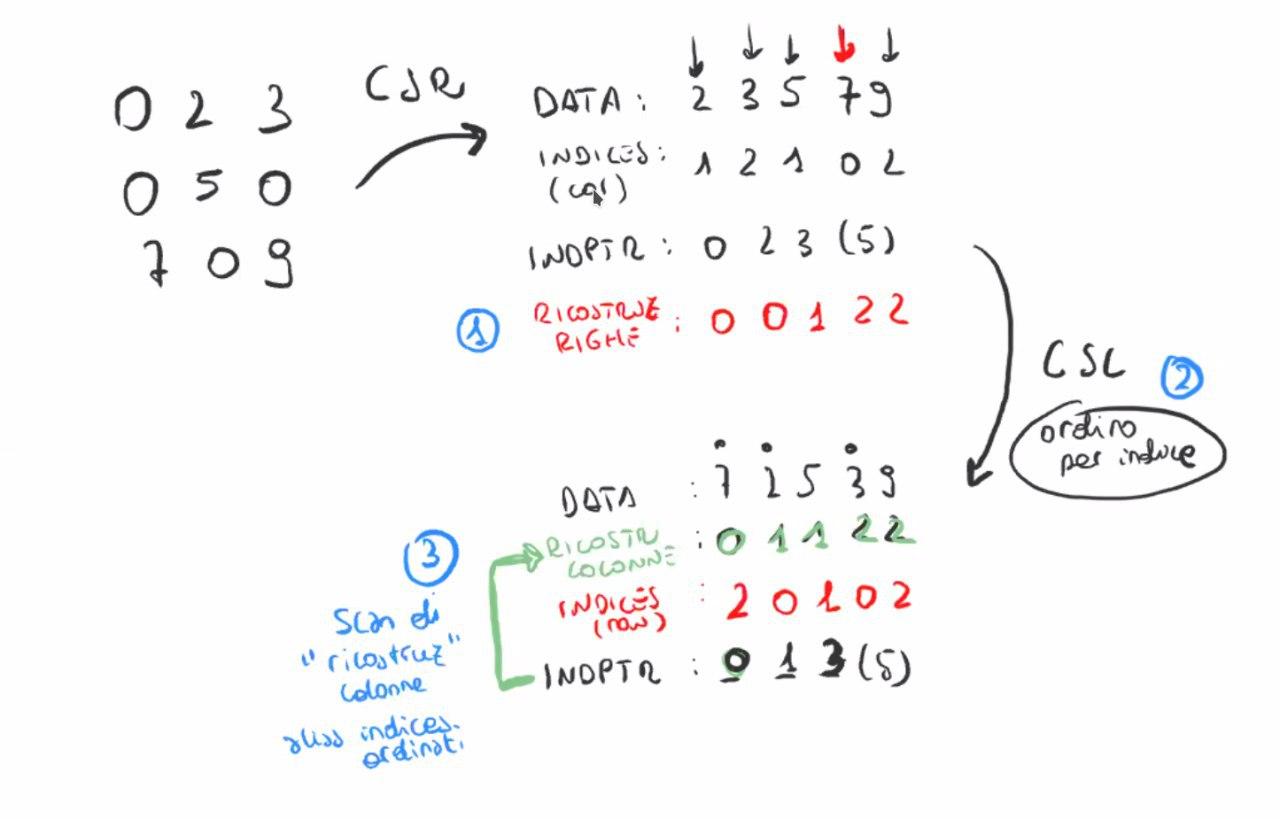 0 2 3
0 5 0
7 0 9
CSR
DATA : 2 3 5 7 9
INDICES : 1 2 1 0 2
(col)
INDPTR : 0 2 3 (5)
1
RICOSTRUZ
RIGHE : 0 0 1 2 2
CSC
2
ordino
per indice
DATA : 7 2 5 3 9
RICOSTR
COLONNE : 0 1 1 2 2
INDICES
(row) : 2 0 1 0 2
INDPTR : 0 1 3 (5)
3
Scan di
"ricostruz"
colonne
alias indices
ordinati